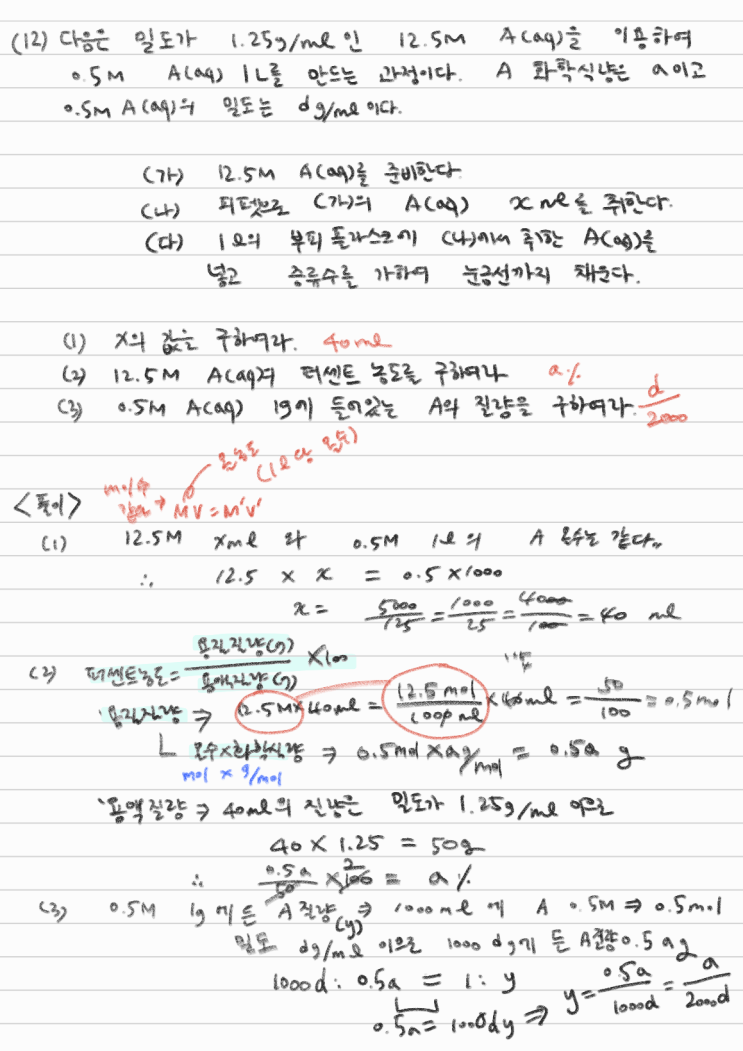 (12) 다음은 밀도가 1.25g/ml인 12.5M A(aq)을 이용하여
0.5M A(aq) 1L를 만드는 과정이다. A 화학식량은 a이고
0.5M A(aq)의 밀도는 d g/ml이다.
(가) 12.5M A(aq)를 준비한다.
(나) 피펫으로 (가)의 A(aq) x ml를 취한다.
(다) 1ℓ의 부피 플라스크에 (나)에서 취한 A(aq)를
넣고 증류수를 가하여 눈금선까지 채운다.
(1) x의 값은 구하여라. 40ml
(2) 12.5M A(aq)의 퍼센트 농도를 구하여라 a%
(3) 0.5M A(aq) 1g에 들어있는 A의 질량을 구하여라. d/2000
몰농도
(1ℓ당 몰수)
mol수
<풀이> 같다 → MV = M'V'
(1) 12.5M xml 와 0.5M 1ℓ의 A 몰수는 같다.
∴ 12.5 × x = 0.5 × 1000
x = 5000/125 = 1000/25 = 4000/100 = 40 ml
(2) 퍼센트농도 = 용질질량(g)/용액질량(g) × 100
용질질량 ⇒ 12.5M × 40ml = 12.5 mol/1000 ml × 40ml = 50/100 = 0.5mol
몰수×화학식량 ⇒ 0.5mol × a g/mol = 0.5a g
mol × g/mol
용액질량 ⇒ 40ml의 질량은 밀도가 1.25g/ml 이므로
40 × 1.25 = 50g
∴ 0.5a/50 × 100 2 = a%
(3) 0.5M 1g에 든 A질량(y) ⇒ 1000ml에 A 0.5M ⇒ 0.5mol
밀도 d g/ml 이므로 1000 dg에 든 A질량 0.5 a g
1000d : 0.5a = 1 : y
0.5a = 1000dy ⇒ y = 0.5a/1000d = a/2000d